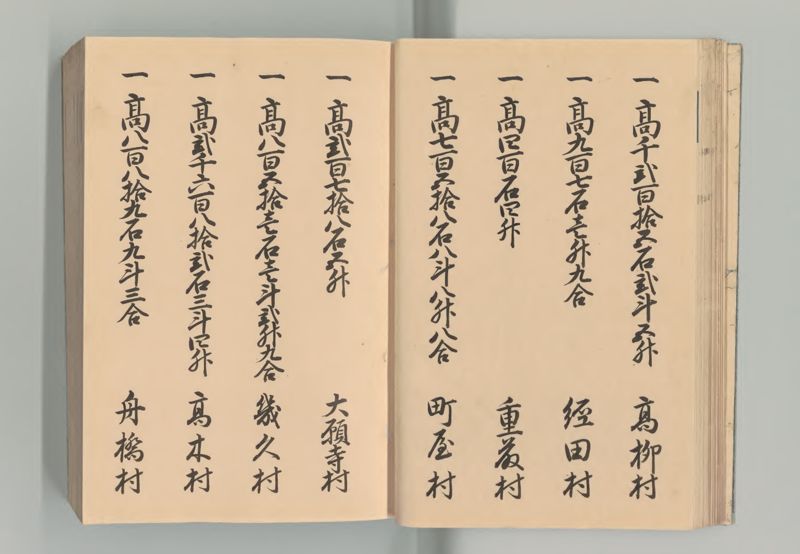 一髙千弐百拾五石弐斗五升 髙柳村
一髙九百七石壱升九合 經田村
一髙四百石四升 重友村
一髙七百五拾八石八斗八升八合 町屋村
一髙弐百七拾八石五升 大願寺村
一髙八百五拾壱石壱斗弐升九合 幾久村
一髙弐千六百八拾弐石三斗四升 髙木村
一髙八百八拾九石九斗三合 舟橋村